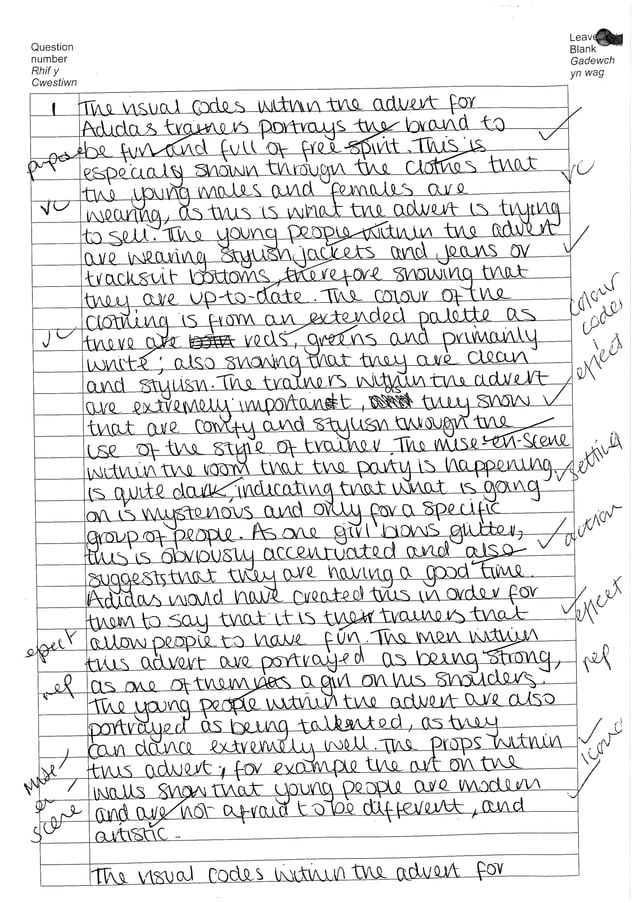 Question
number
Rhif y
Cwestiwn
Leave
Blank
Gadewch
yn wag
1 The visual codes within the advert for
Adidas trainers portrays the brand to
purpose be fun and full of free spirit. This is
especially shown through the clothes that VC
the young males and females are
VC wearing, as this is what the advert is trying
to sell. The young people within the advert
are wearing stylish jackets and jeans or
tracksuit bottoms, therefore showing that
they are up-to-date. The colour of the colour
clothing is from an extended palette as codes
VC there are reds, greens and primarily
white; also showing that they are clean effect
and stylish. The trainers within the advert
are extremely important, as they show
that are comfy and stylish through the
use of the style of trainer. The mise-en-scene
within the room that the party is happening setting
is quite dark, indicating that what is going
on is mysterious and only for a specific
group of people. As one girl blows glitter, action
this is obviously accentuated and also
suggests that they are having a good time.
Adidas would have created this in order for
them to say that it is their trainers that effect
effect allow people to have fun. The men within
this advert are portrayed as being strong, rep
rep as one of them has a girl on his shoulders.
The young people within the advert are also
portrayed as being talented, as they
can dance extremely well. The props within
mise this advert, for example the art on the
en walls show that young people are modern
scene and are not afraid to be different, and
artistic.
The visual codes within the advert for